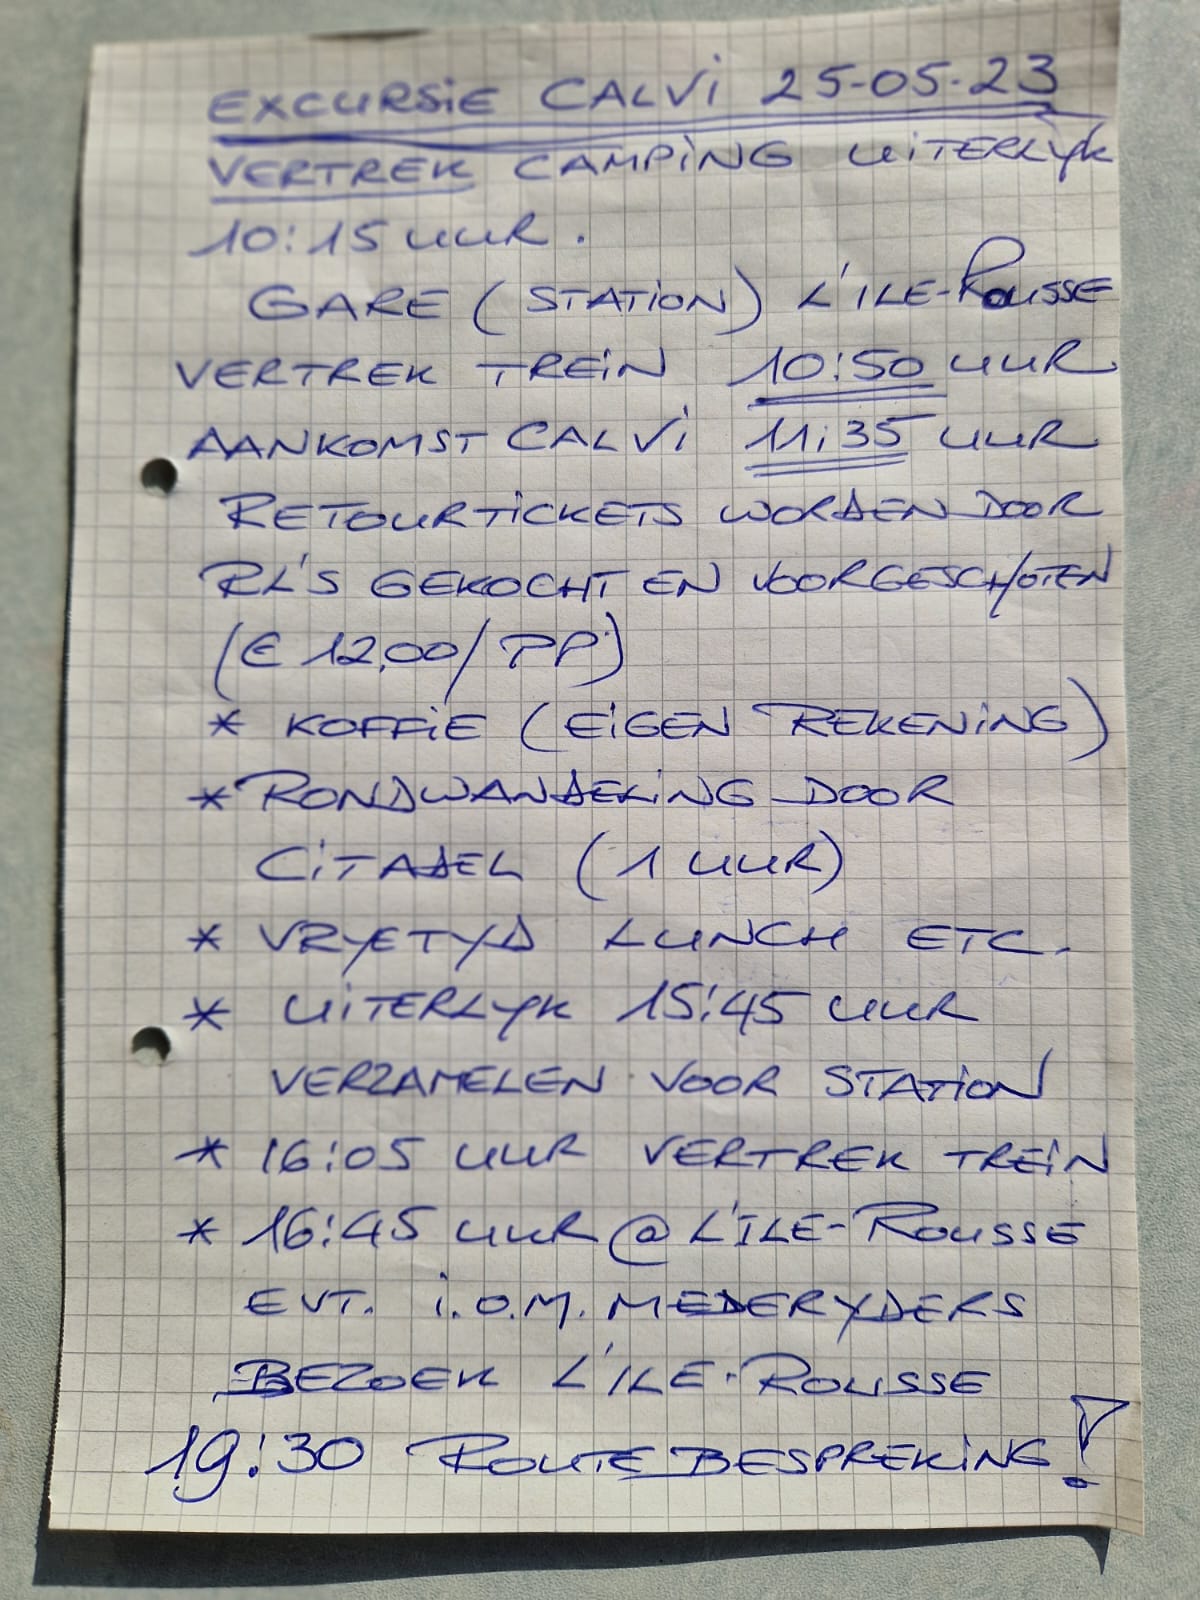 EXCURSIE CALVI 25-05-23
VERTREK CAMPING UITERLYK
10:15 UUR.
GARE (STATION) L'ILE-ROUSSE
VERTREK TREIN 10:50 UUR
AANKOMST CALVI 11:35 UUR
RETOURTICKETS WORDEN DOOR
RL'S GEKOCHT EN VOORGESCHOTEN
(€ 12,00/PP)
* KOFFIE (EIGEN REKENING)
* RONDWANDELING DOOR
CITADEL (1 UUR)
* VRYETYD LUNCH ETC.
* UITERLYK 15:45 UUR
VERZAMELEN VOOR STATION
* 16:05 UUR VERTREK TREIN
* 16:45 UUR @ L'ILE-ROUSSE
EVT. I.O.M. MEDERYDERS
BEZOEK L'ILE-ROUSSE
19:30 ROUTEBESPREKING!